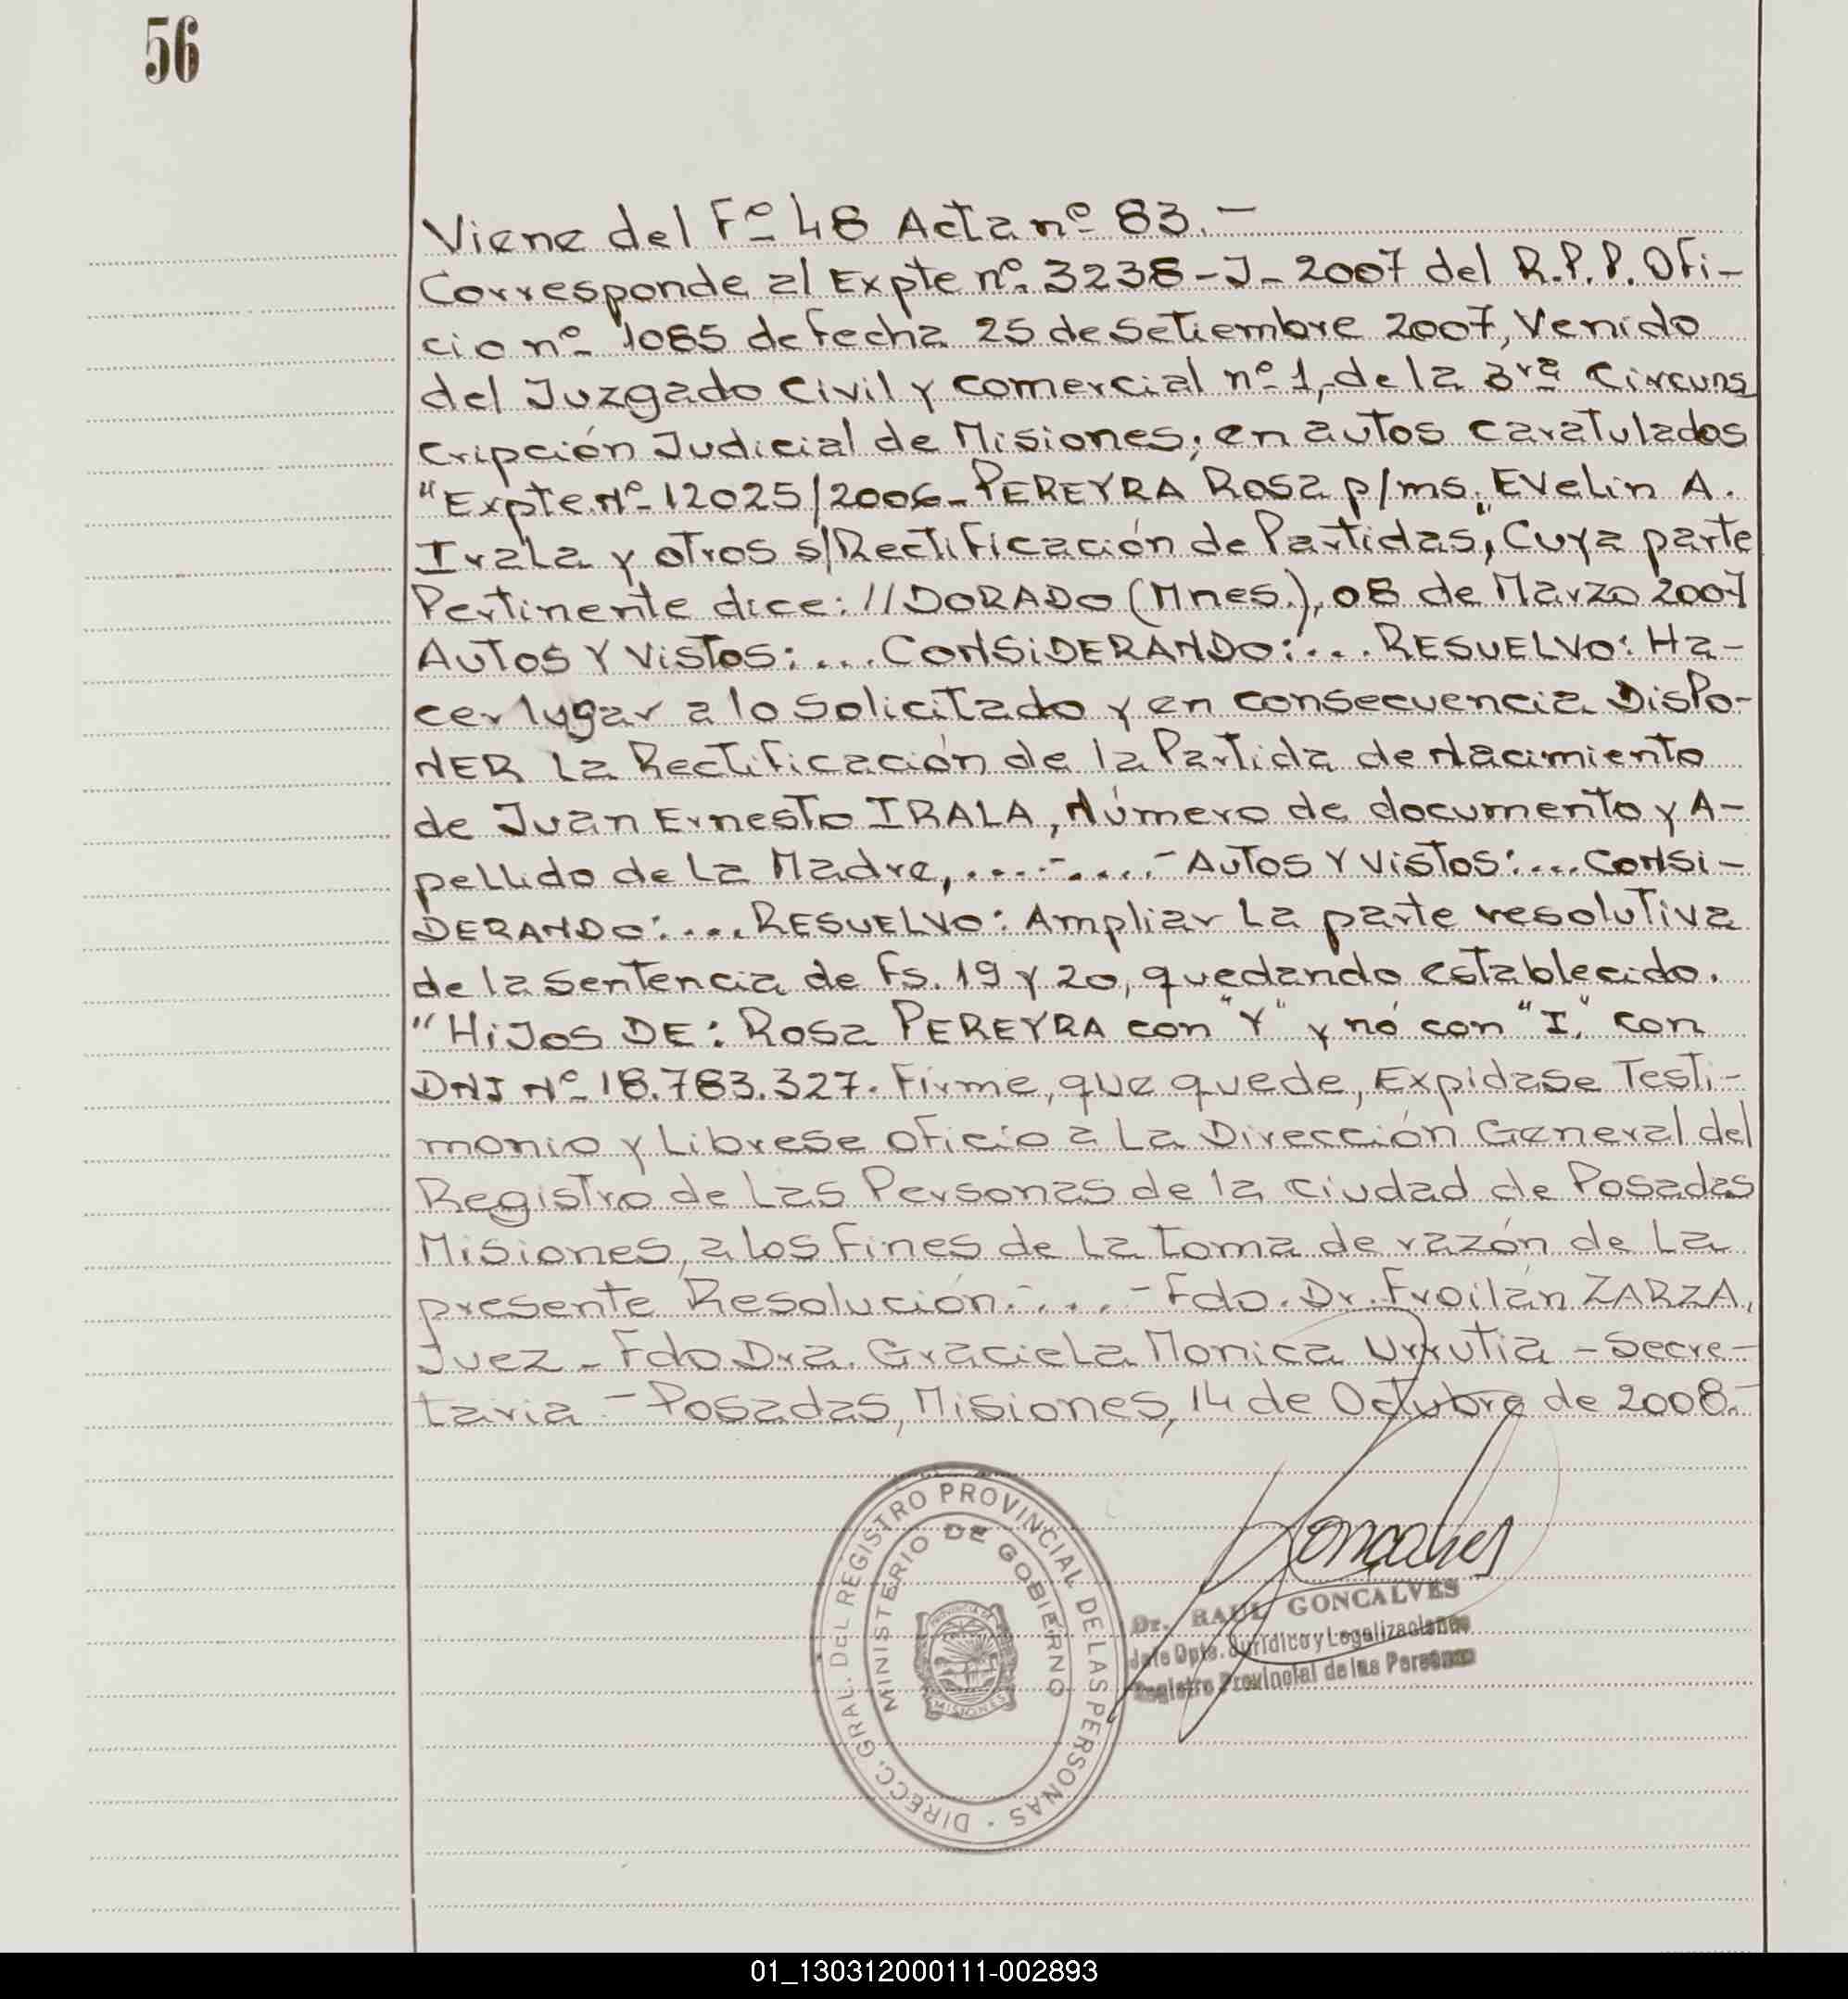 56
Viene del Fº 48 Acta nº 83.-
Corresponde al Expte nº 3238-J-2007 del R.P.P. Ofi-
cio nº 1085 de fecha 25 de Setiembre 2007, Venido
del Juzgado Civil y comercial nº 1, de la 3ra Circuns
cripción Judicial de Misiones; en autos caratulados
"Expte. Nº 12025/2006- PEREYRA Rosa p/ms. Evelin A.
Irala y otros s/Rectificación de Partidas", Cuya parte
Pertinente dice: //DORADO (Mnes.), 08 de Marzo 2007
Autos Y Vistos:... CONSiDERANDO:... RESUELVO: Ha-
cer lugar a lo Solicitado y en consecuencia DisPo-
NER La Rectificación de la Partida de Nacimiento
de Juan Ernesto IRALA, Número de documento y A-
pellido de La Madre, ....-....- Autos Y Vistos:... CONSi-
DERANDO:.... RESUELVO: Ampliar La parte resolutiva
de la Sentencia de Fs. 19 y 20, quedando establecido.
"HiJos DE: Rosa PEREYRA con "Y" y nó con "I," con
DNI Nº 18.783.327. Firme, que quede, Expidase Testi-
monio y Librese oficio a La Dirección General del
Registro de Las Personas de la Ciudad de Posadas
Misiones, a los Fines de La toma de razón de La
presente Resolución.-...-Fdo. Dr. Froilán ZARZA,
Juez - Fdo Dra. Graciela Monica Urrutia - Secre-
taria.- Posadas, Misiones, 14 de Octubre de 2008.-
Goncalves
DIRECC. GRAL. DEL REGISTRO PROVINCIAL DE LAS PERSONAS ·
MINISTERIO DE GOBIERNO
PROVINCIA DE
MISIONES
Dr. RAUL GONCALVES
Jefe Dpto. Jurídico y Legalizaciones
Registro Provincial de las Personas
01_130312000111-002893